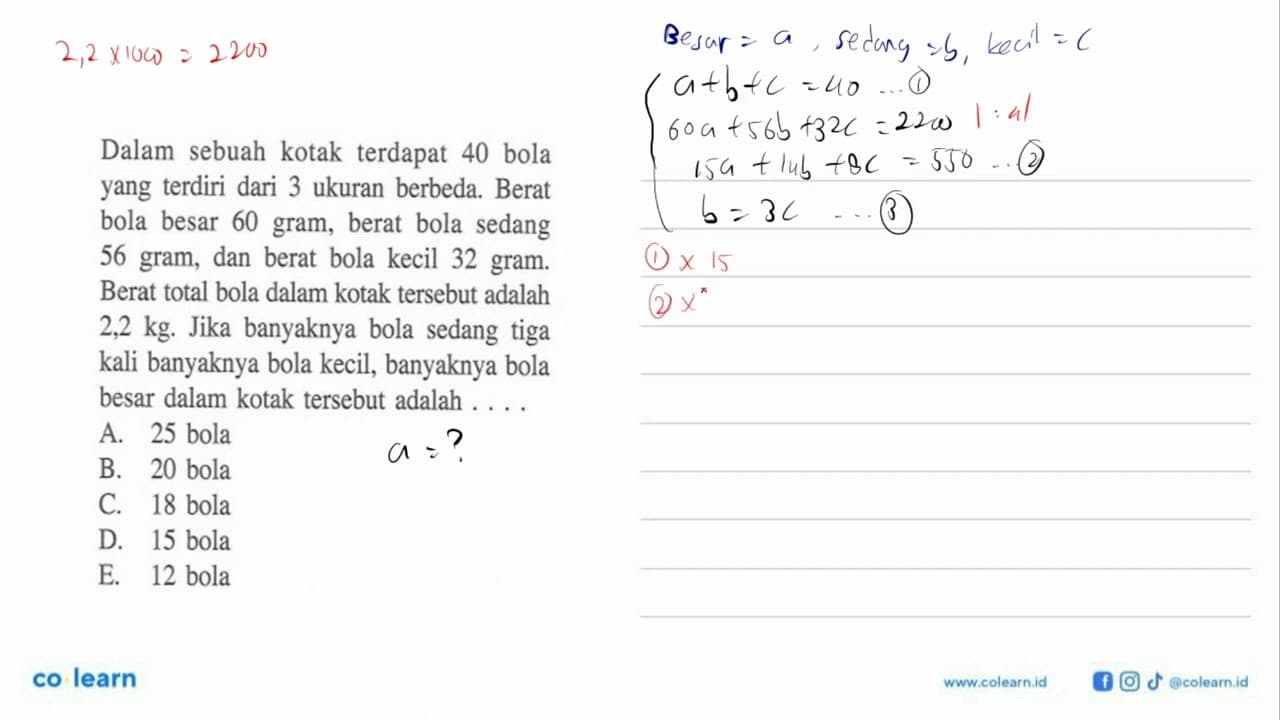 2,2 x 1000 = 2200
Dalam sebuah kotak terdapat 40 bola
yang terdiri dari 3 ukuran berbeda. Berat
bola besar 60 gram, berat bola sedang
56 gram, dan berat bola kecil 32 gram.
Berat total bola dalam kotak tersebut adalah
2,2 kg. Jika banyaknya bola sedang tiga
kali banyaknya bola kecil, banyaknya bola
besar dalam kotak tersebut adalah . . . .
A. 25 bola
B. 20 bola
C. 18 bola
D. 15 bola
E. 12 bola
a = ?
Besar = a, sedang = b, kecil = c
a + b + c = 40 ... ①
60a + 56b + 32c = 2200 | : 4 |
15a + 14b + 8c = 550 ... ②
b = 3c ... ③
① x 15
② x
co learn
www.colearn.id
@colearn.id